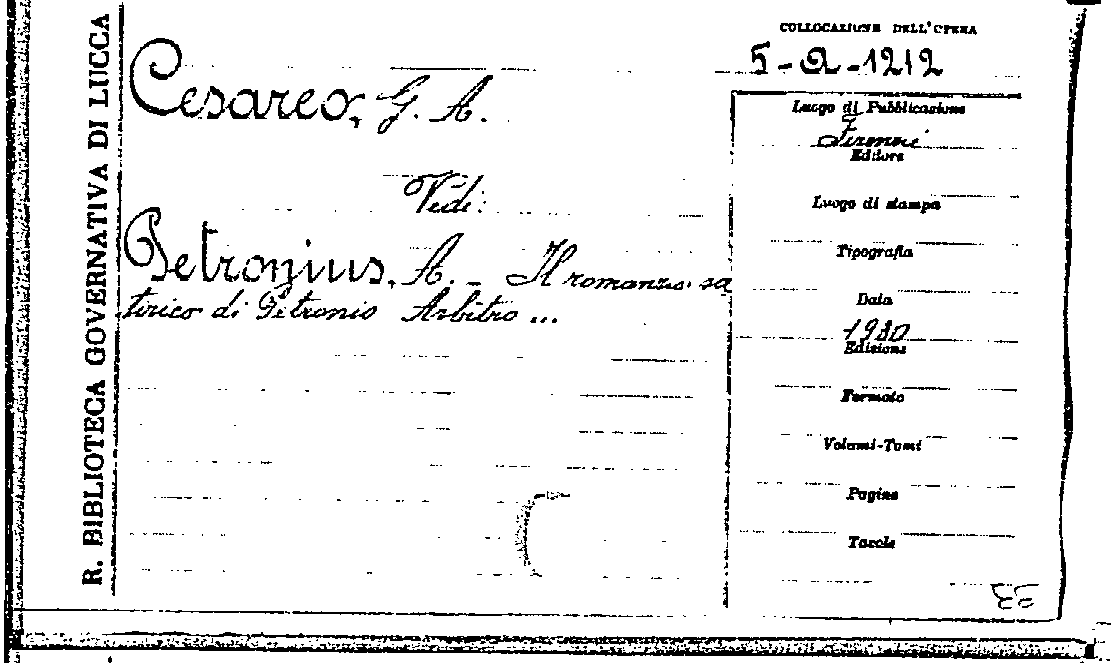 R. BIBLIOTECA GOVERNATIVA DI LUCCA
Cesareo, G. A.
Vedi:
Petronius, A. – Il romanzo sa
tirico di Petronio Arbitro ...
COLLOCAZIONE DELL'OPERA
5-Q-1212
Luogo di Pubblicazione
Firenze
Editore
Luogo di stampa
Tipografia
Data
1930
Edizione
Formato
Volumi-Tomi
Pagine
Tavole